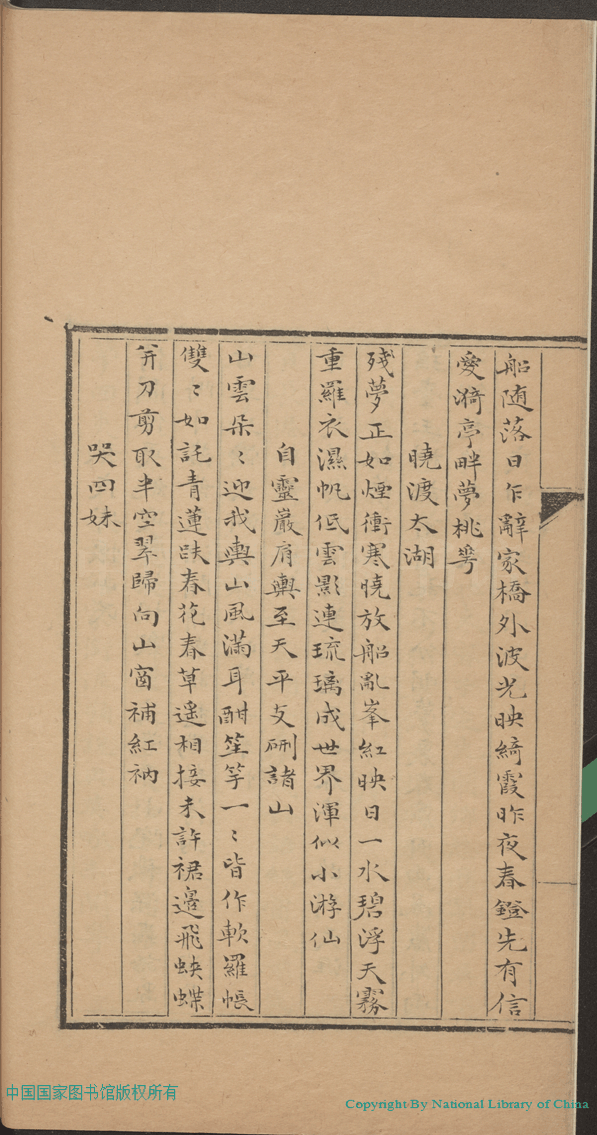 船随落日乍辭家橋外波光映綺霞昨夜春鐙先有信
愛漪亭畔夢桃蕚
曉渡太湖
殘夢正如煙衝寒曉放船亂峯紅映日一水碧浮天霧
重羅衣濕帆低雲影連琉璃成世界渾似小游仙
自靈巖肩輿至天平支硎諸山
山雲朵〻迎我輿山風滿耳酣笙竽一〻皆作軟羅帳
雙〻如託青蓮趺春花春草遥相接未許裙邊飛蛺蝶
并刀剪取半空翠歸向山窗補紅衲
哭四妹
中国国家图书馆版权所有
Copyright By National Library of China